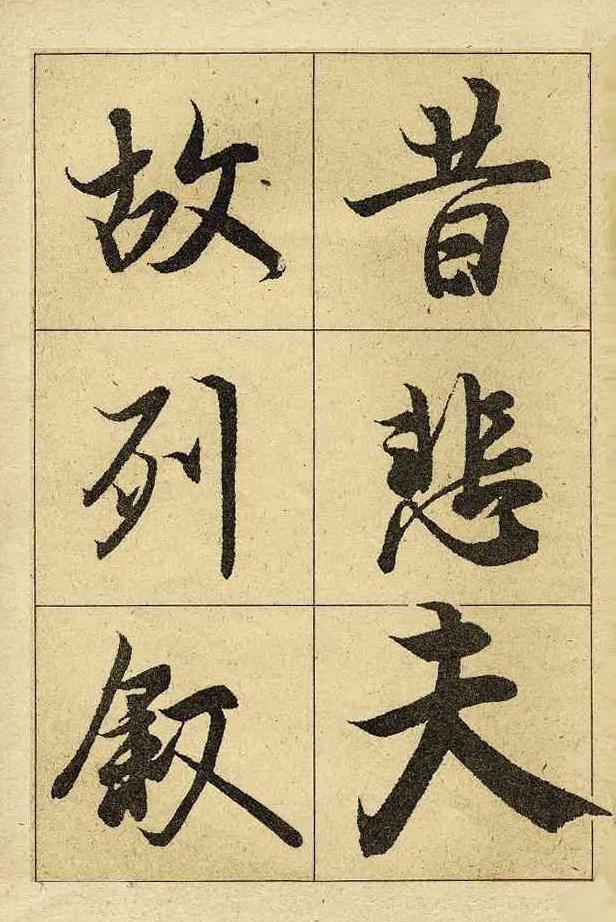 昔悲夫
故列叙